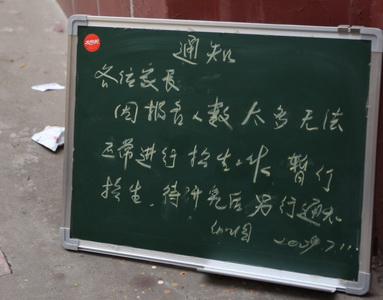 通知
各位家长
因报名人数太多无法
正常进行招生工作 暂行
招生．待研究后另行通知
幼儿园